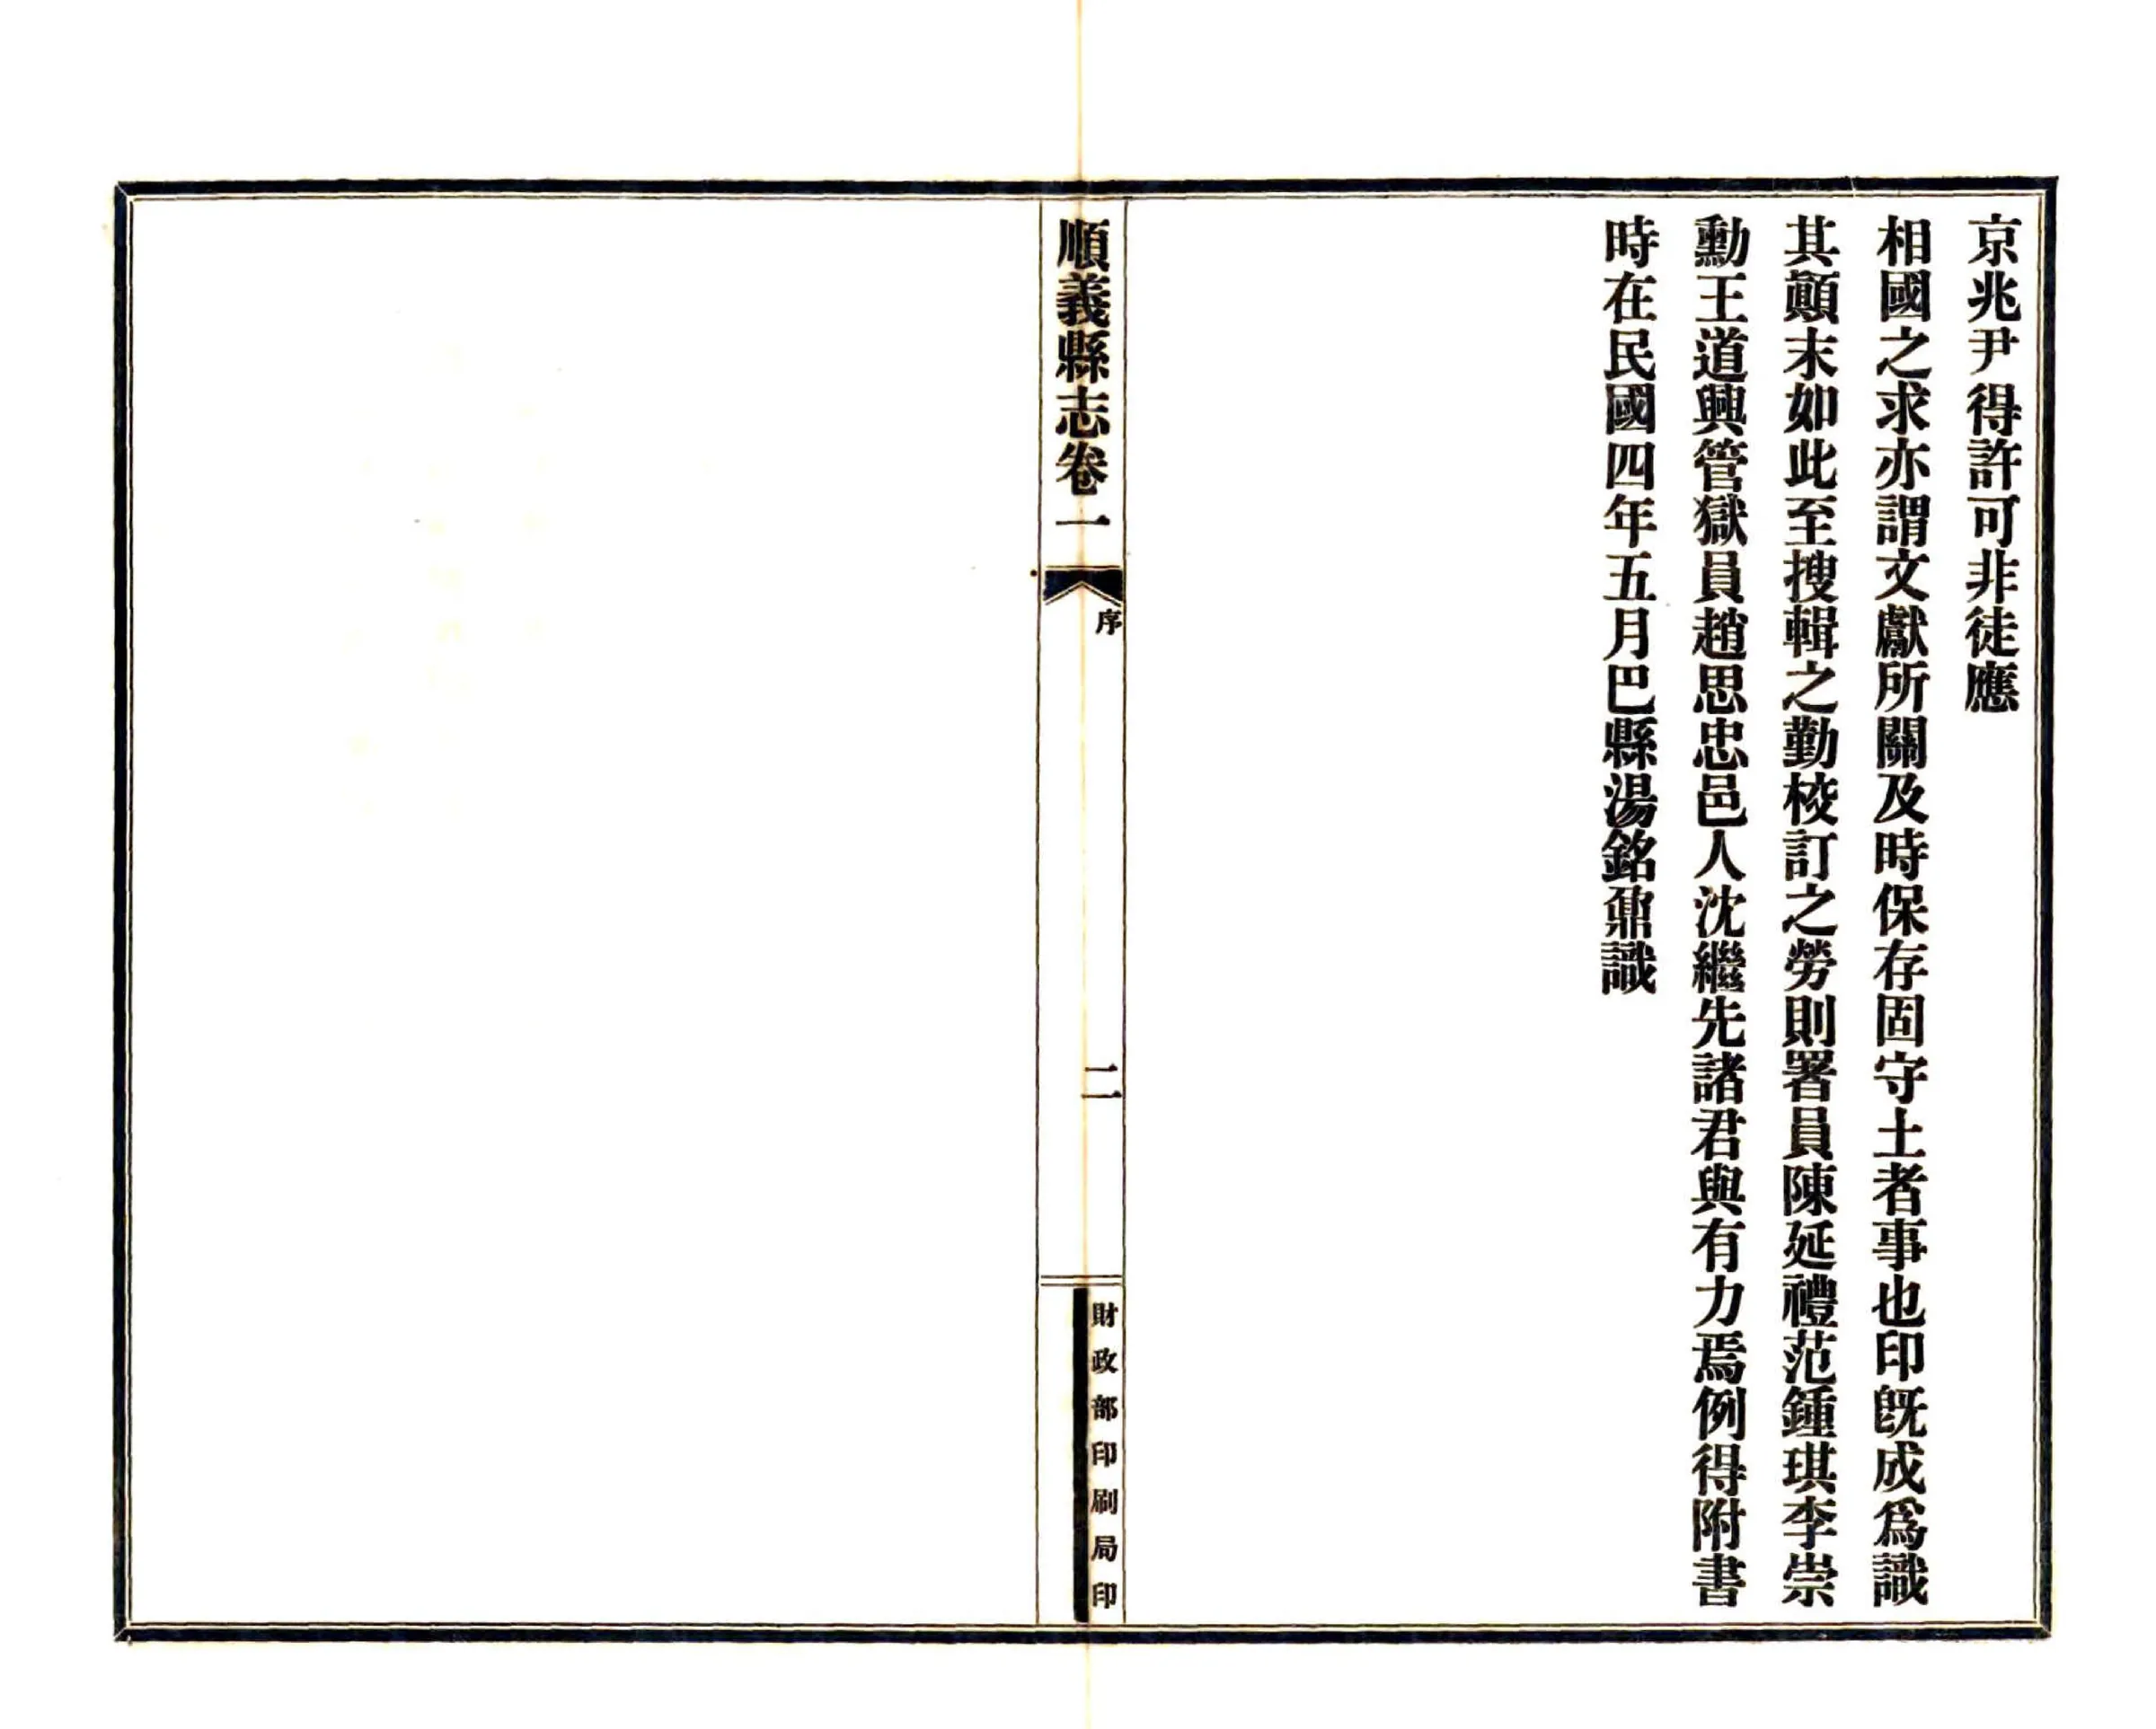 京兆尹得許可非徒應
相國之求亦謂文獻所關及時保存固守土者事也印旣成爲識
其顚末如此至搜輯之勤校訂之勞則署員陳延禮范鍾琪李崇
勳王道興管獄員趙思忠邑人沈繼先諸君與有力焉例得附書
時在民國四年五月巴縣湯銘鼐識
順義縣志卷一
序
二
財政部印刷局印